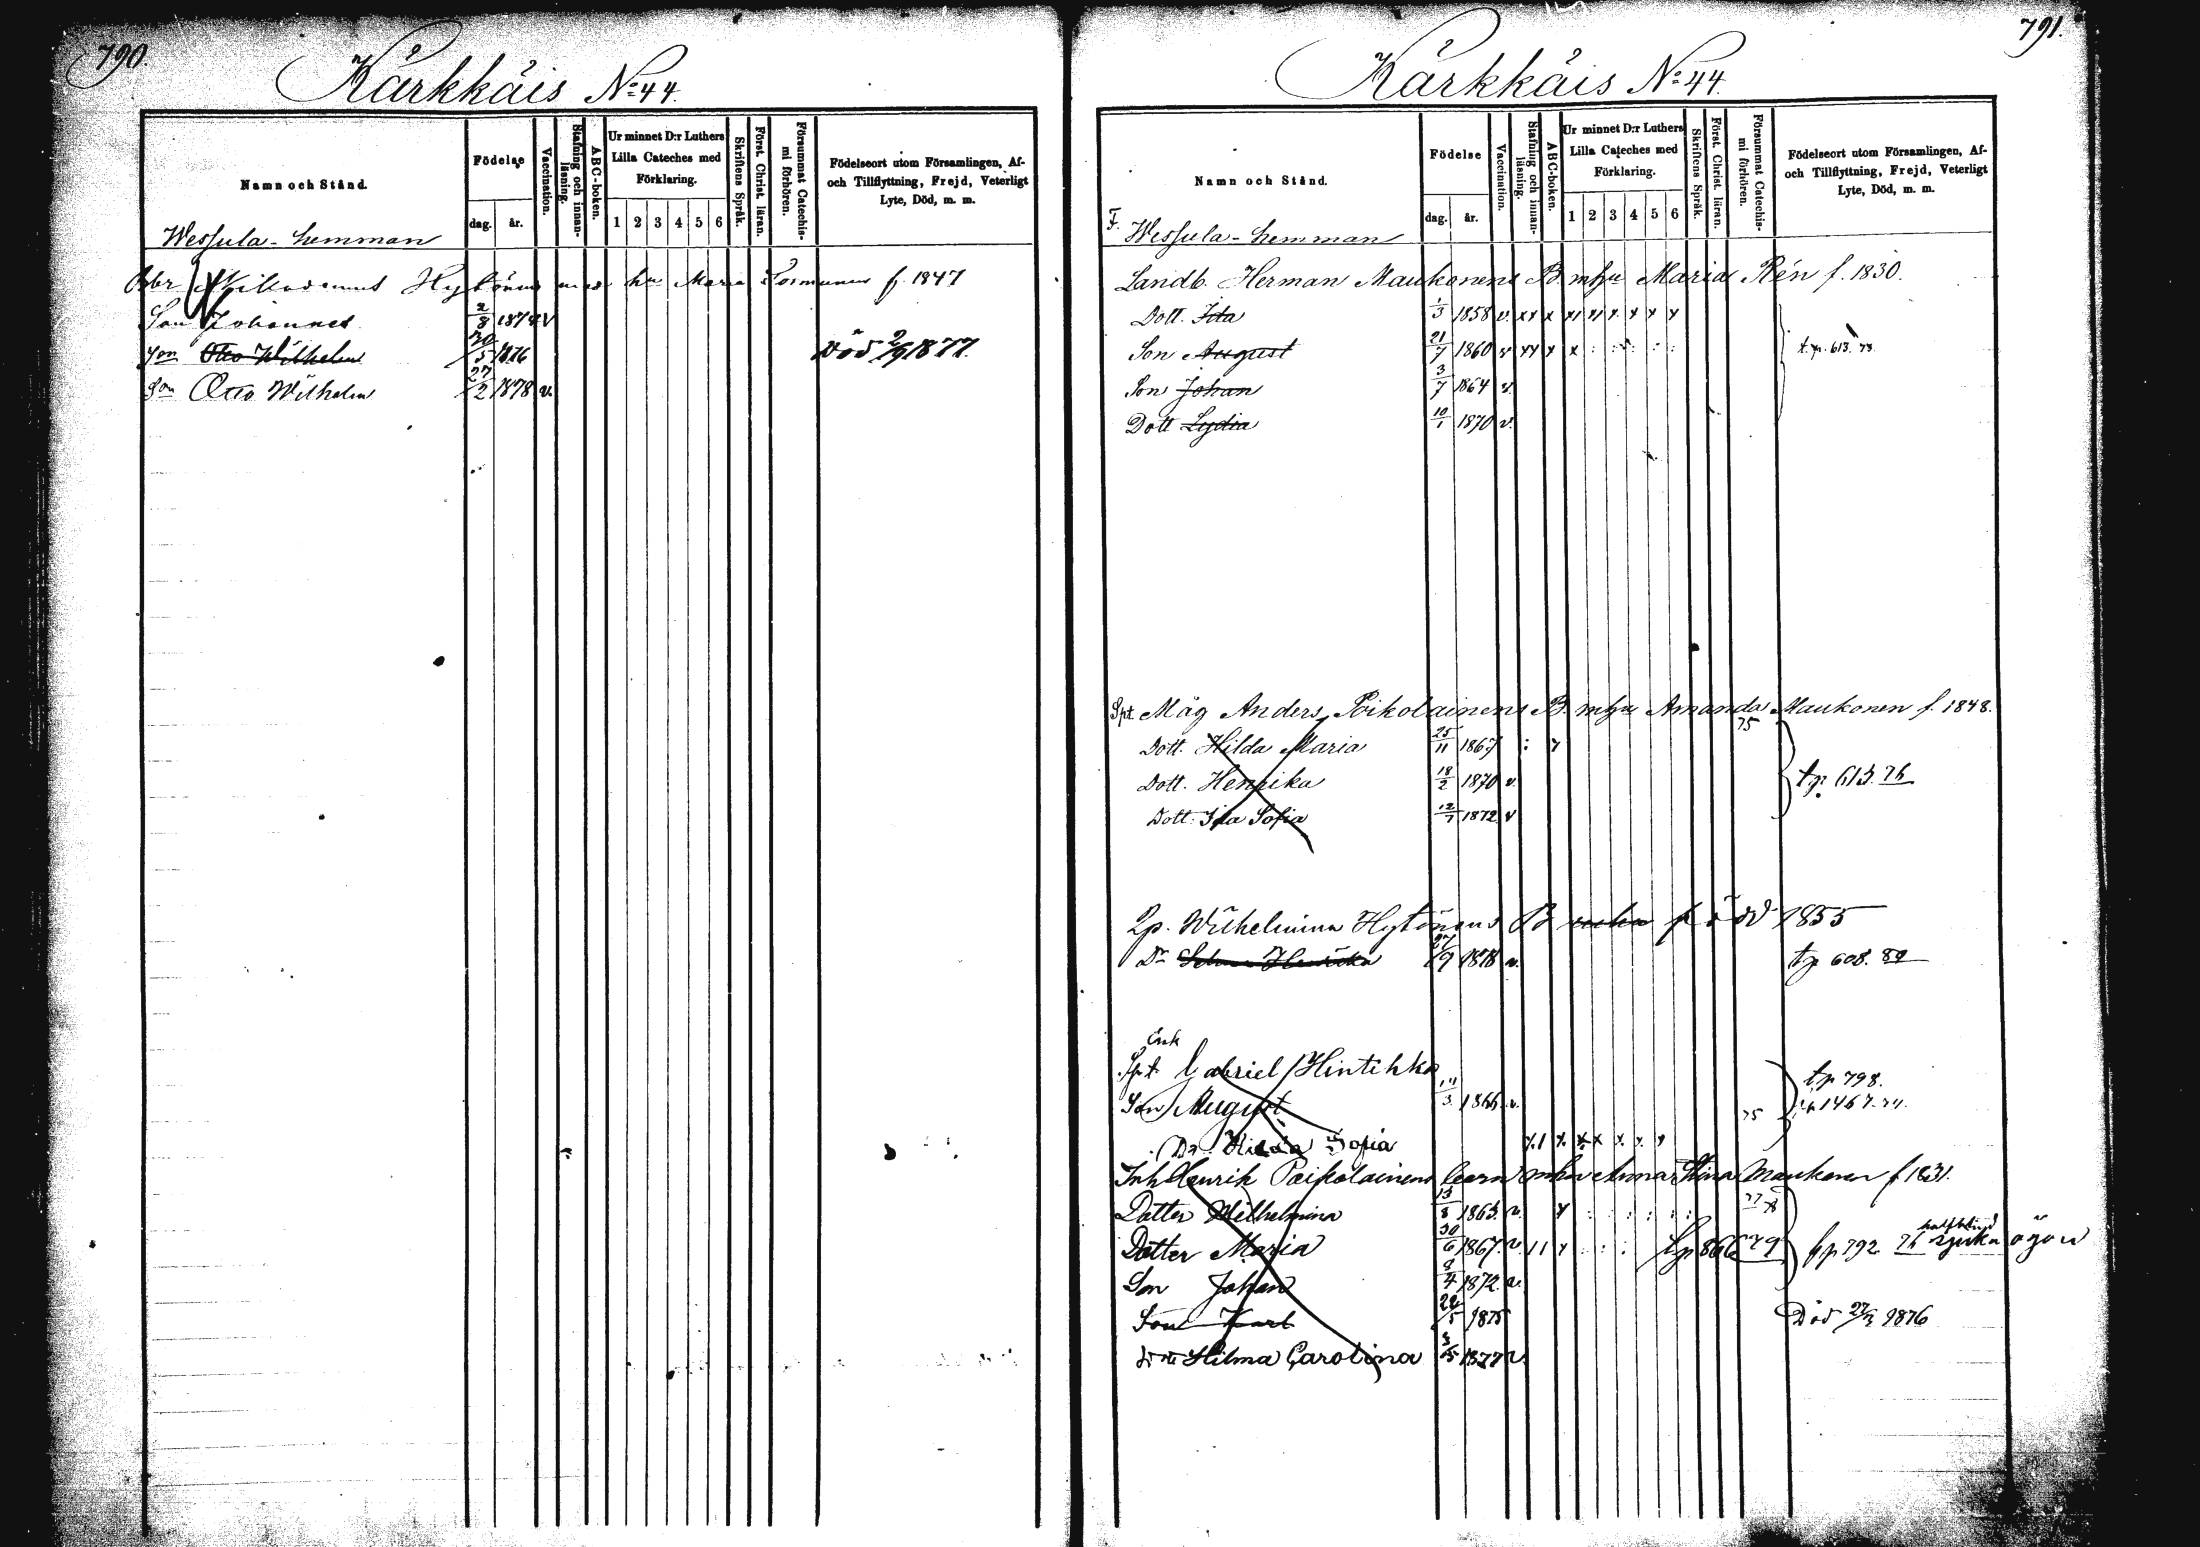 790.
Kärkkäis No 44.
Namn och Stånd.
Födelse
dag.
år.
Vaccination.
Stafning och innan-läsning.
ABC-boken.
Ur minnet D:r Luthers Lilla Cateches med Förklaring.
1 2 3 4 5 6
Skriftens Språk.
Först. Christ. läran.
Försummat Catechismi förhören.
Födelseort utom Församlingen, Af- och Tillflyttning, Frejd, Veterligt Lyte, Död, m. m.
Wessula-hemman
Hytönens hu Maria f. 1847
Son Johannes 2/8 1874 v
Son Otto Wilhelm 20/5 1876 Död 2/9 1877.
Son Otto Wilhelm 27/2 1878 v.
791.
Kärkkäis No 44.
Namn och Stånd.
Födelse
dag.
år.
Vaccination.
Stafning och innan-läsning.
ABC-boken.
Ur minnet D:r Luthers Lilla Cateches med Förklaring.
1 2 3 4 5 6
Skriftens Språk.
Först. Christ. läran.
Försummat Catechismi förhören.
Födelseort utom Församlingen, Af- och Tillflyttning, Frejd, Veterligt Lyte, Död, m. m.
Wessula-hemman
Landb. Herman Maukonens B. mhu Maria Rén f. 1830.
Dott. Ida 1/3 1858 v. xx x x x x x x x
Son August 21/7 1860 v xx x x
Son Johan 3/7 1864 v.
Dott Lydia 10/1 1870 v.
Spt. Måg Anders Poikolainens B. mhu Amanda Maukonen f. 1848.
75
Dott. Hilda Maria 25/11 1867
Dott. Henrika 18/2 1870 v.
tp 613. 76
Dott. Ida Sofia 12/7 1872 v
Lp. Wilhelmina Hytönens B född 1855
Dr Henrika 27/9 1878 v. tp 608.
Enk
Spt Gabriel Hintikka
tp 798.
Son August 1866 v.
75
Dr Sofia
Inh Henrik Poikolainens barn mhu Anna Stina Maukonen f 1831.
Dotter Wilhelmina 13/8 1863. v.
Dotter Maria 30/6 1867. v. 79 792 76 sjuka ögon
Son Johan 8/4 1872. v.
Son Karl 22/5 1875 Död 1876
Hilma Carolina 1877 v.